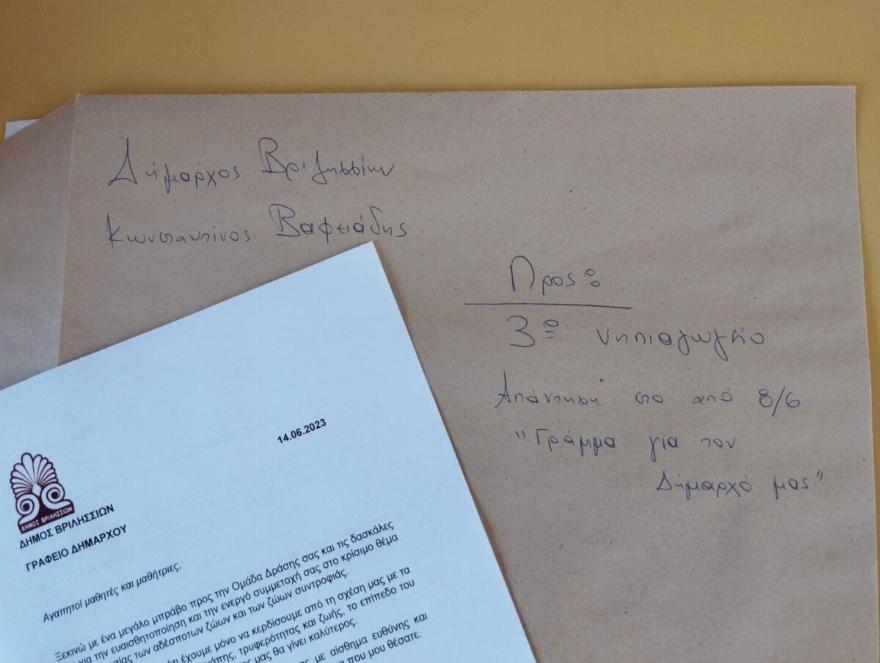 Δήμαρχος Βριλησσίων
Κωνσταντίνος Βαφειάδης
Προς:
3ο Νηπιαγωγείο
Απάντηση στο από 8/6
"Γράμμα για τον
Δήμαρχό μας"
14.06.2023
ΔΗΜΟΣ ΒΡΙΛΗΣΣΙΩΝ
ΔΗΜΟΣ ΒΡΙΛΗΣΣΙΩΝ
ΓΡΑΦΕΙΟ ΔΗΜΑΡΧΟΥ
Αγαπητοί μαθητές και μαθήτριες,
Ξεκινώ με ένα μεγάλο μπράβο προς την Ομάδα Δράσης σας και τις δασκάλες
για την ευαισθητοποίηση και την ενεργό συμμετοχή σας στο κρίσιμο θέμα
των αδέσποτων ζώων και των ζώων συντροφιάς.
έχουμε μόνο να κερδίσουμε από τη σχέση μας με τα
τρυφερότητας και ζωής, το επίπεδο του
μας θα γίνει καλύτερος.
με αίσθημα ευθύνης και
που μου θέσατε.